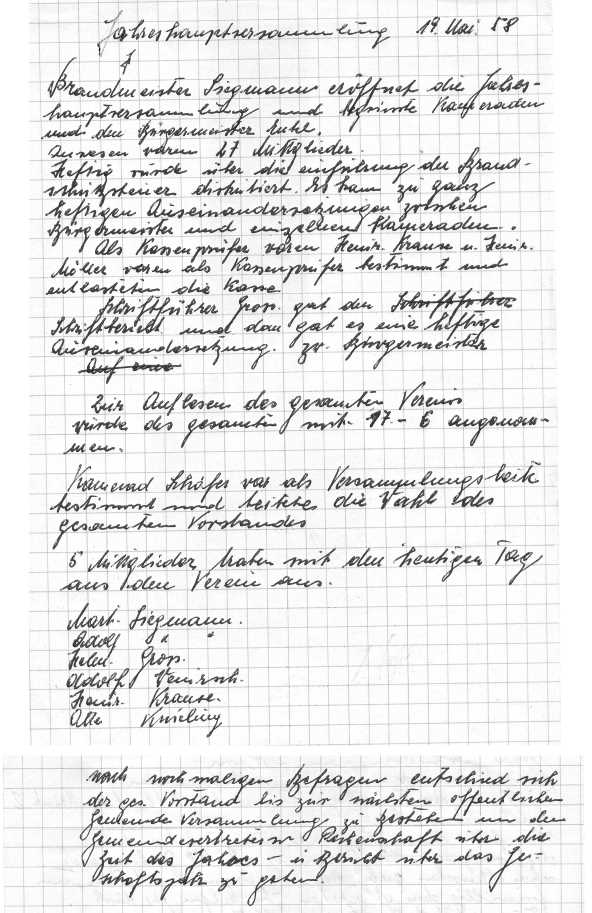 Jahreshauptversammlung 19. Mai. 58
Brandmeister Siegmann eröffnet die Jahres-
hauptversammlung und begrüsste Kameraden
und den Bürgermeister
Anwesen waren 27 Mitglieder.
Heftig wurde über die einführung der Brand-
schutzsteuer diskutiert. Es kam zu ganz
heftigen Auseinandersetzungen zwischen
Bürgermeister und einzelnen Kameraden.
Als Kassenprüfer waren Heinr. Krause u. Heinr.
Möller waren als Kassenprüfer bestimmt und
entlasteten die Kasse
Schriftführer Gross. gab den Schriftführer
Schriftbericht und dan gab es eine heftige
Auseinandersetzung. zw. Bürgermeister
Auf eine
Zur Auflösen des gesamten Vereins
würde des gesamten mit. 17 - 6 angenom-
men.
Kamerad Schäfer war als Versammlungsleite
bestimmt und leitetes die Wahl des
gesamten Vorstandes
5 Mitglieder traten mit den heutigen Tag
aus den Verein aus.
Mart. Siegmann.
Adolf " "
Helm. Gross.
Adolf
Heinr. Krause.
Otto
nach nochmaligen Befragen entschied sich
der ges. Vorstand bis zur nächsten öffentlichen
Gemeinde Versammlung zu bestehen um den
Gemeindevertreter Rechenschaft über die
Zeit des Jahres - u Bericht über das Ge-
schäftsjahr zu geben.